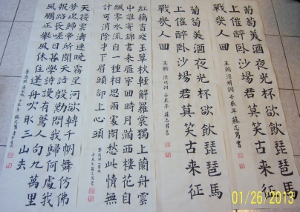 葡萄美酒夜光杯欲飲琵琶馬
上催醉臥沙場君莫笑古來征
戰人回
葡萄美酒夜光杯欲飲琵琶馬
上催醉臥沙場君莫笑古來征
戰人回
紅藕香殘玉簟秋輕解羅裳獨上蘭舟雲
中誰寄錦書來雁字回時月滿西樓花自
飄零水自流一種相思兩處閒愁此情無
計可消除才下眉頭卻上心頭
天接雲濤連曉霧星河欲轉千帆舞彷彿
夢魂歸帝所聞天語殷勤問我歸何處我
報路長嗟日暮學詩謾有驚人句九萬里
風正舉風休住蓬舟吹取三山去
01/26/2013